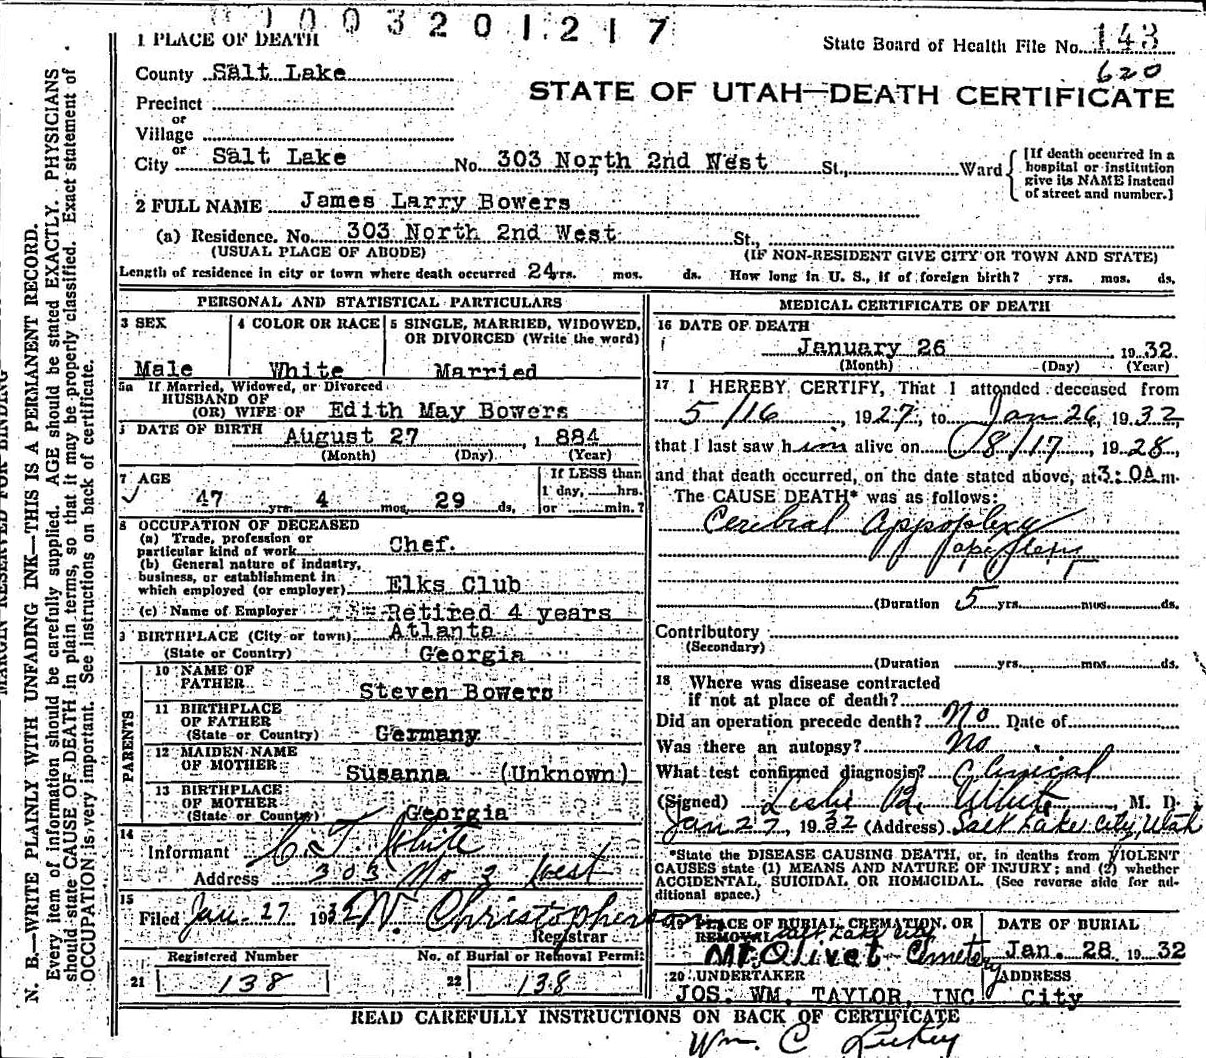 003201217
1 PLACE OF DEATH
State Board of Health File No. 143
620
County Salt Lake
STATE OF UTAH—DEATH CERTIFICATE
Precinct
or
Village
or
City Salt Lake No. 303 North 2nd West St., Ward
[If death occurred in a hospital or institution give its NAME instead of street and number.]
2 FULL NAME James Larry Bowers
(a) Residence. No. 303 North 2nd West St.,
(USUAL PLACE OF ABODE) (IF NON-RESIDENT GIVE CITY OR TOWN AND STATE)
Length of residence in city or town where death occurred 24 yrs. mos. ds. How long in U. S., if of foreign birth? yrs. mos. ds.
PERSONAL AND STATISTICAL PARTICULARS
3 SEX
Male
4 COLOR OR RACE
White
5 SINGLE, MARRIED, WIDOWED, OR DIVORCED (Write the word)
Married
5a If Married, Widowed, or Divorced
HUSBAND OF
(OR) WIFE OF Edith May Bowers
DATE OF BIRTH August 27, 1884
(Month) (Day) (Year)
7 AGE
47 yrs. 4 mos. 29 ds.
If LESS than
1 day, hrs.
or min.?
8 OCCUPATION OF DECEASED
(a) Trade, profession or
particular kind of work Chef.
(b) General nature of industry,
business, or establishment in
which employed (or employer) Elks Club
(c) Name of Employer Retired 4 years
9 BIRTHPLACE (City or town) Atlanta
(State or Country) Georgia
PARENTS
10 NAME OF
FATHER Steven Bowers
11 BIRTHPLACE
OF FATHER
(State or Country) Germany
12 MAIDEN NAME
OF MOTHER Susanna (Unknown)
13 BIRTHPLACE
OF MOTHER
(State or Country) Georgia
14
Informant C. T. White
Address 303 No 2 West
15
Filed Jan-27 1932 W. Christopherson
Registrar
Registered Number
21 138
No. of Burial or Removal Permit
22 138
MEDICAL CERTIFICATE OF DEATH
16 DATE OF DEATH
January 26 1932.
(Month) (Day) (Year)
17 I HEREBY CERTIFY, That I attended deceased from
5/16, 1927, to Jan 26, 1932,
that I last saw him alive on 8/17, 1928,
and that death occurred, on the date stated above, at 3:0A m.
The CAUSE DEATH* was as follows:
Cerebral Appoplexy
apoplexy
(Duration 5 yrs. mos. ds.
Contributory
(Secondary)
(Duration yrs. mos. ds.
18 Where was disease contracted
if not at place of death?
Did an operation precede death? No Date of
Was there an autopsy? No
What test confirmed diagnosis? Clinical
(Signed) Leslie B. White, M. D.
Jan 27, 1932 (Address) Salt Lake City, Utah
*State the DISEASE CAUSING DEATH, or, in deaths from VIOLENT
CAUSES state (1) MEANS AND NATURE OF INJURY; and (2) whether
ACCIDENTAL, SUICIDAL OR HOMICIDAL. (See reverse side for additional space.)
19 PLACE OF BURIAL, CREMATION, OR
REMOVAL
Mt Olivet Cemetery
DATE OF BURIAL
Jan. 28 1932
20 UNDERTAKER
JOS. WM. TAYLOR, INC
ADDRESS
City
READ CAREFULLY INSTRUCTIONS ON BACK OF CERTIFICATE
Wm. C
MARGIN RESERVED FOR BINDING
N. B.—WRITE PLAINLY WITH UNFADING INK—THIS IS A PERMANENT RECORD.
Every item of information should be carefully supplied. AGE should be stated EXACTLY. PHYSICIANS
should state CAUSE OF DEATH in plain terms, so that it may be properly classified. Exact statement of
OCCUPATION is very important. See instructions on back of certificate.